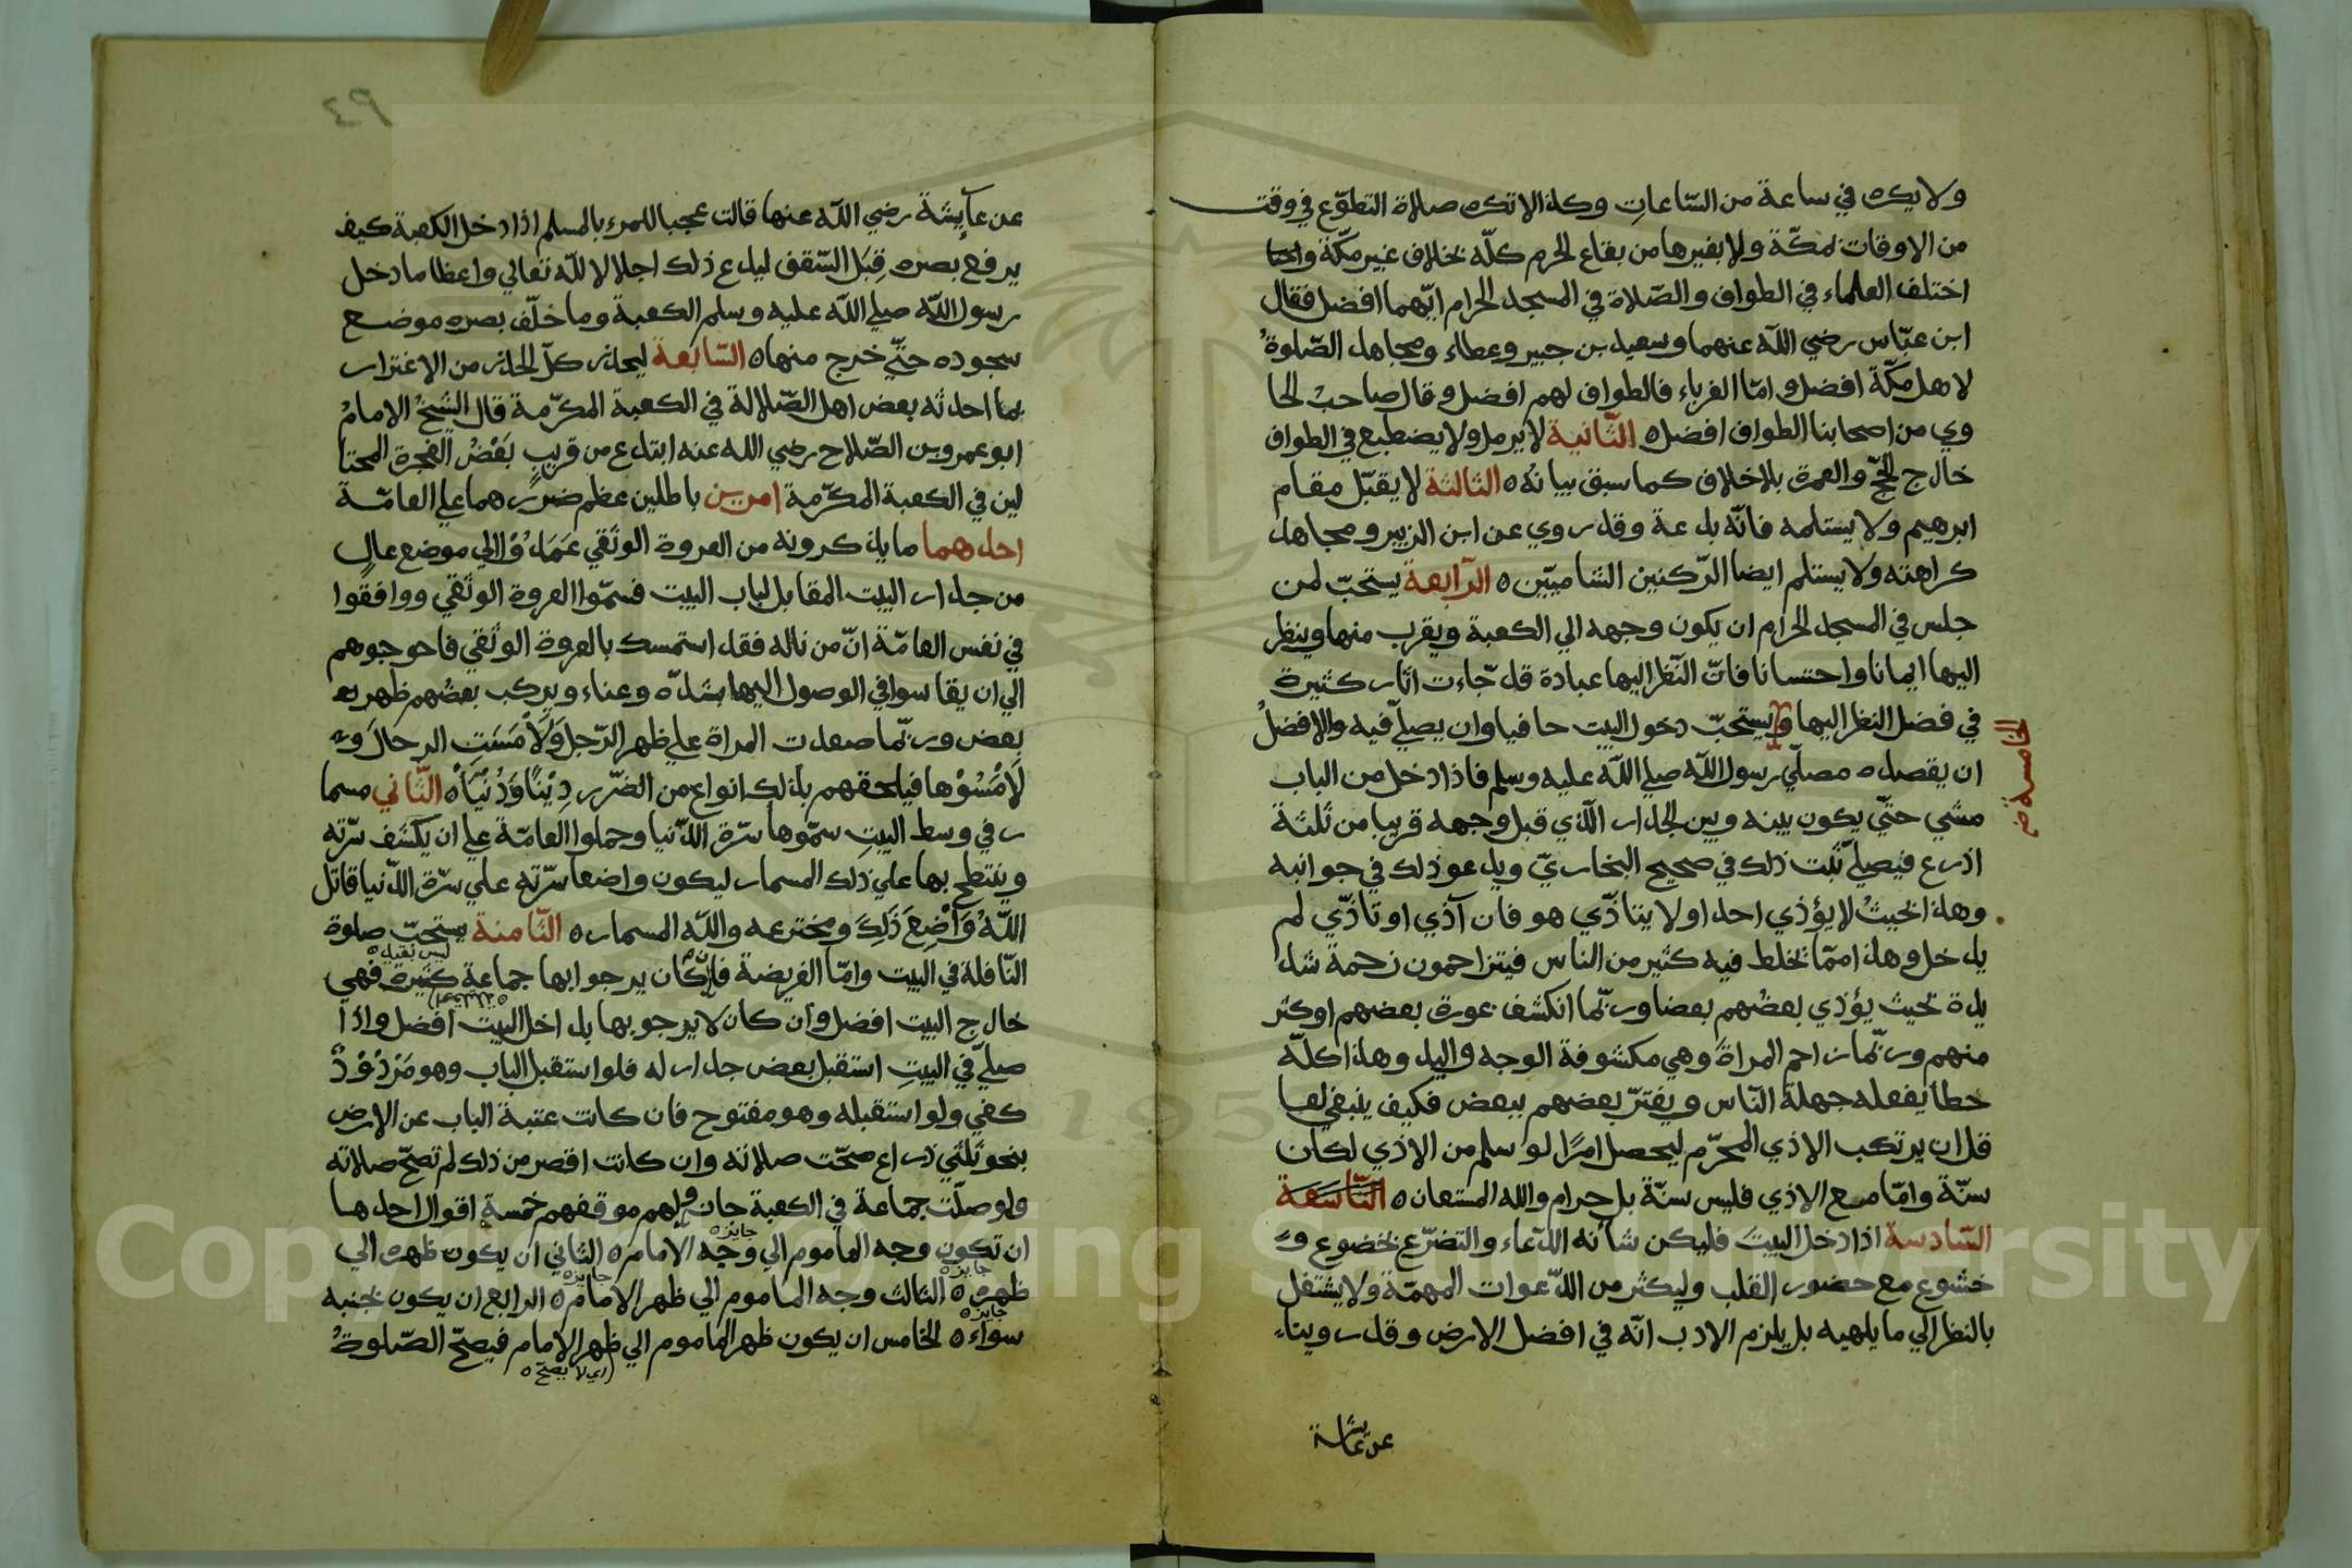 ولا يكره في ساعة من السّاعات وكذا لا تكره صلاة التطوّع في وقت
من الاوقات بمكّة ولا بغيرها من بقاع الحرم كلّه بخلاف غير مكّة
اختلف العلماء في الطواف والصّلاة في المسجد الحرام ايّهما افضل فقال
ابن عبّاس رضي اللّه عنهما وسعيد بن جبير وعطاء ومجاهد الصّلوةُ
لاهل مكّة افضل وامّا الغرباء فالطواف لهم افضل وقال صاحب الحا
وي من اصحابنا الطواف افضل ه الثّانية لا يرمل ولا يضطبع في الطواف
خارج الحجّ والعمرة بلا خلاف كما سبق بيانُه ه الثالثة لا يقبّل مقام
ابرهيم ولا يستلمه فانّه بدعة وقد روي عن ابن الزبير ومجاهد
كراهته ولا يستلم ايضا الرّكنين الشاميّين ه الرّابعة يستحبّ لمن
جلس في المسجد الحرام ان يكون وجهه الي الكعبة ويقرب منها وينظر
اليها ايمانا واحتسانا فانّ النّظر اليها عبادة قد جاءت اثار كثيرة
في فضل النظر اليها ويستحبّ دخول البيت حافيا وان يصلّي فيه والافضلُ
الخامسة صح
ان يقصد ه مصلّي رسول اللّه صلي اللّه عليه وسلم فاذا دخل من الباب
مشي حتّي يكون بينه وبين الجدار الّذي قبل وجهه قريبا من ثلثة
اذرع فيصلّي ثبت ذلك في صحيح البخاريّ ويدعو ذلك في جوانبه
وهذا بحيثُ لا يؤذي احدا ولا يتاذّي هو فان آذي او تاذّي لم
يدخل وهذا ممّا تخلط فيه كثير من الناس فيتزاحمون زحمة شد
يدة بحيث يؤذي بعضُهم بعضا وربّما انكشف عورة بعضهم او كثر
منهم وربّما زاحم المراةَ وهي مكشوفة الوجه واليد وهذا كلّه
خطأ يفعله جهلة النّاس ويغترّ بعضهم ببعض فكيف ينبغي لعا
قل ان يرتكب الاذي المحرّم ليحصل امرًا لو سلم من الاذي لكان
سنّة وامّا مع الاذي فليس سنّة بل حرام والله المستعان ه التّاسعة
السّادسة اذا دخل البيتَ فليكن شأنه الدّعاء والتضرّع بخضوع و
خشوع مع حضور القلب وليكثر من الدّعوات المهمّة ولا يشتغل
بالنظر الي ما يلهيه بل يلزم الادب انّه في افضل الارض وقد روينا
عن عائشة
٩٤
عن عآيشة رضي اللّه عنها قالت عجبا للمرء بالمسلم اذا دخل الكعبة كيف
يرفع بصره قِبَلَ السّقف ليدع ذلك اجلالا للّه تعالي واعظاما دخل
رسول اللّه صلي اللّه عليه وسلم الكعبة وما خلّف بصره موضع
سجوده حتّي خرج منها ه السّابعة ليحذر كلّ الحذر من الاغترار
بما احدثه بعض اهل الضّلالة في الكعبة المكرّمة قال الشّيخُ الامامُ
ابو عمرو بن الصّلاح رضي الله عنه ابتدع من قريبٍ بَعْضُ الفجرة المحتا
لين في الكعبة المكرّمة امرين باطلين عظم ضررهما علي العامّة
احدهما ما يذكرونه من العروة الوثقي عَمَدُوْا الي موضع عالٍ
من جدار البيت المقابل لباب البيت فسمّوا العروة الوثقي ووافقُوا
في نفس العامّة انّ من ناله فقد استمسك بالعروة الوثقي فاحوجوهم
الي ان يقاسوا في الوصول اليها شدّة وعناء ويركب بعضُهم ظهر
بعض وربّما صعدت المراة علي ظهر الرّجل وَلَامَسَتِ الرجالَ و
لَامَسُوْها فيلحقهم بذلك انواع من الضّرر دِيْنًا وَدُنْيَا ه الثّاني مسما
ر في وسط البيتِ سمّوها سرّة الدّنيا وحملوا العامّة علي ان يكشف سرّته
وينتطح بها علي ذلك المسمار ليكون واضعا سرّته علي سرّة الدّنيا قاتل
اللّهُ وَاضِعَ ذَلِكَ ومخترعه واللّه المسمار ه الثّامنة يستحبّ صلوة
النّافلة في البيت وامّا الفريضة فان كان يرجوا بها جماعة كثيرة فهي
خارج البيت افضل وان كان لا يرجو بها بداخل البيت افضل واذا
صلّي في البيتِ استقبل بعض جدار له فلو استقبل الباب وهو مَرْدُوْدٌ
كفي ولو استقبله وهو مفتوح فان كانت عتبة الباب عن الارض
بنحو ثلثي ذراع صحّت صلاته وان كانت اقصر من ذلك لم تصحّ صلاته
ولو صلّت جماعة في الكعبة جاز ولهم موقفهم خمسة اقوال احدها
ان تكون وجه الماموم الي وجه الامام ه الثاني ان يكون ظهره الي
جايزه
ظهره ه الثالث وجه الماموم الي ظهر الامام ه الرابع ان يكون بجنبه
جايزه
جايزه
سواء ه الخامس ان يكون ظهر الماموم الي ظهر الامام فيصحّ الصّلوةُ
جايزه
اي لا يصحّ ه
Copyright © King Saud University
195